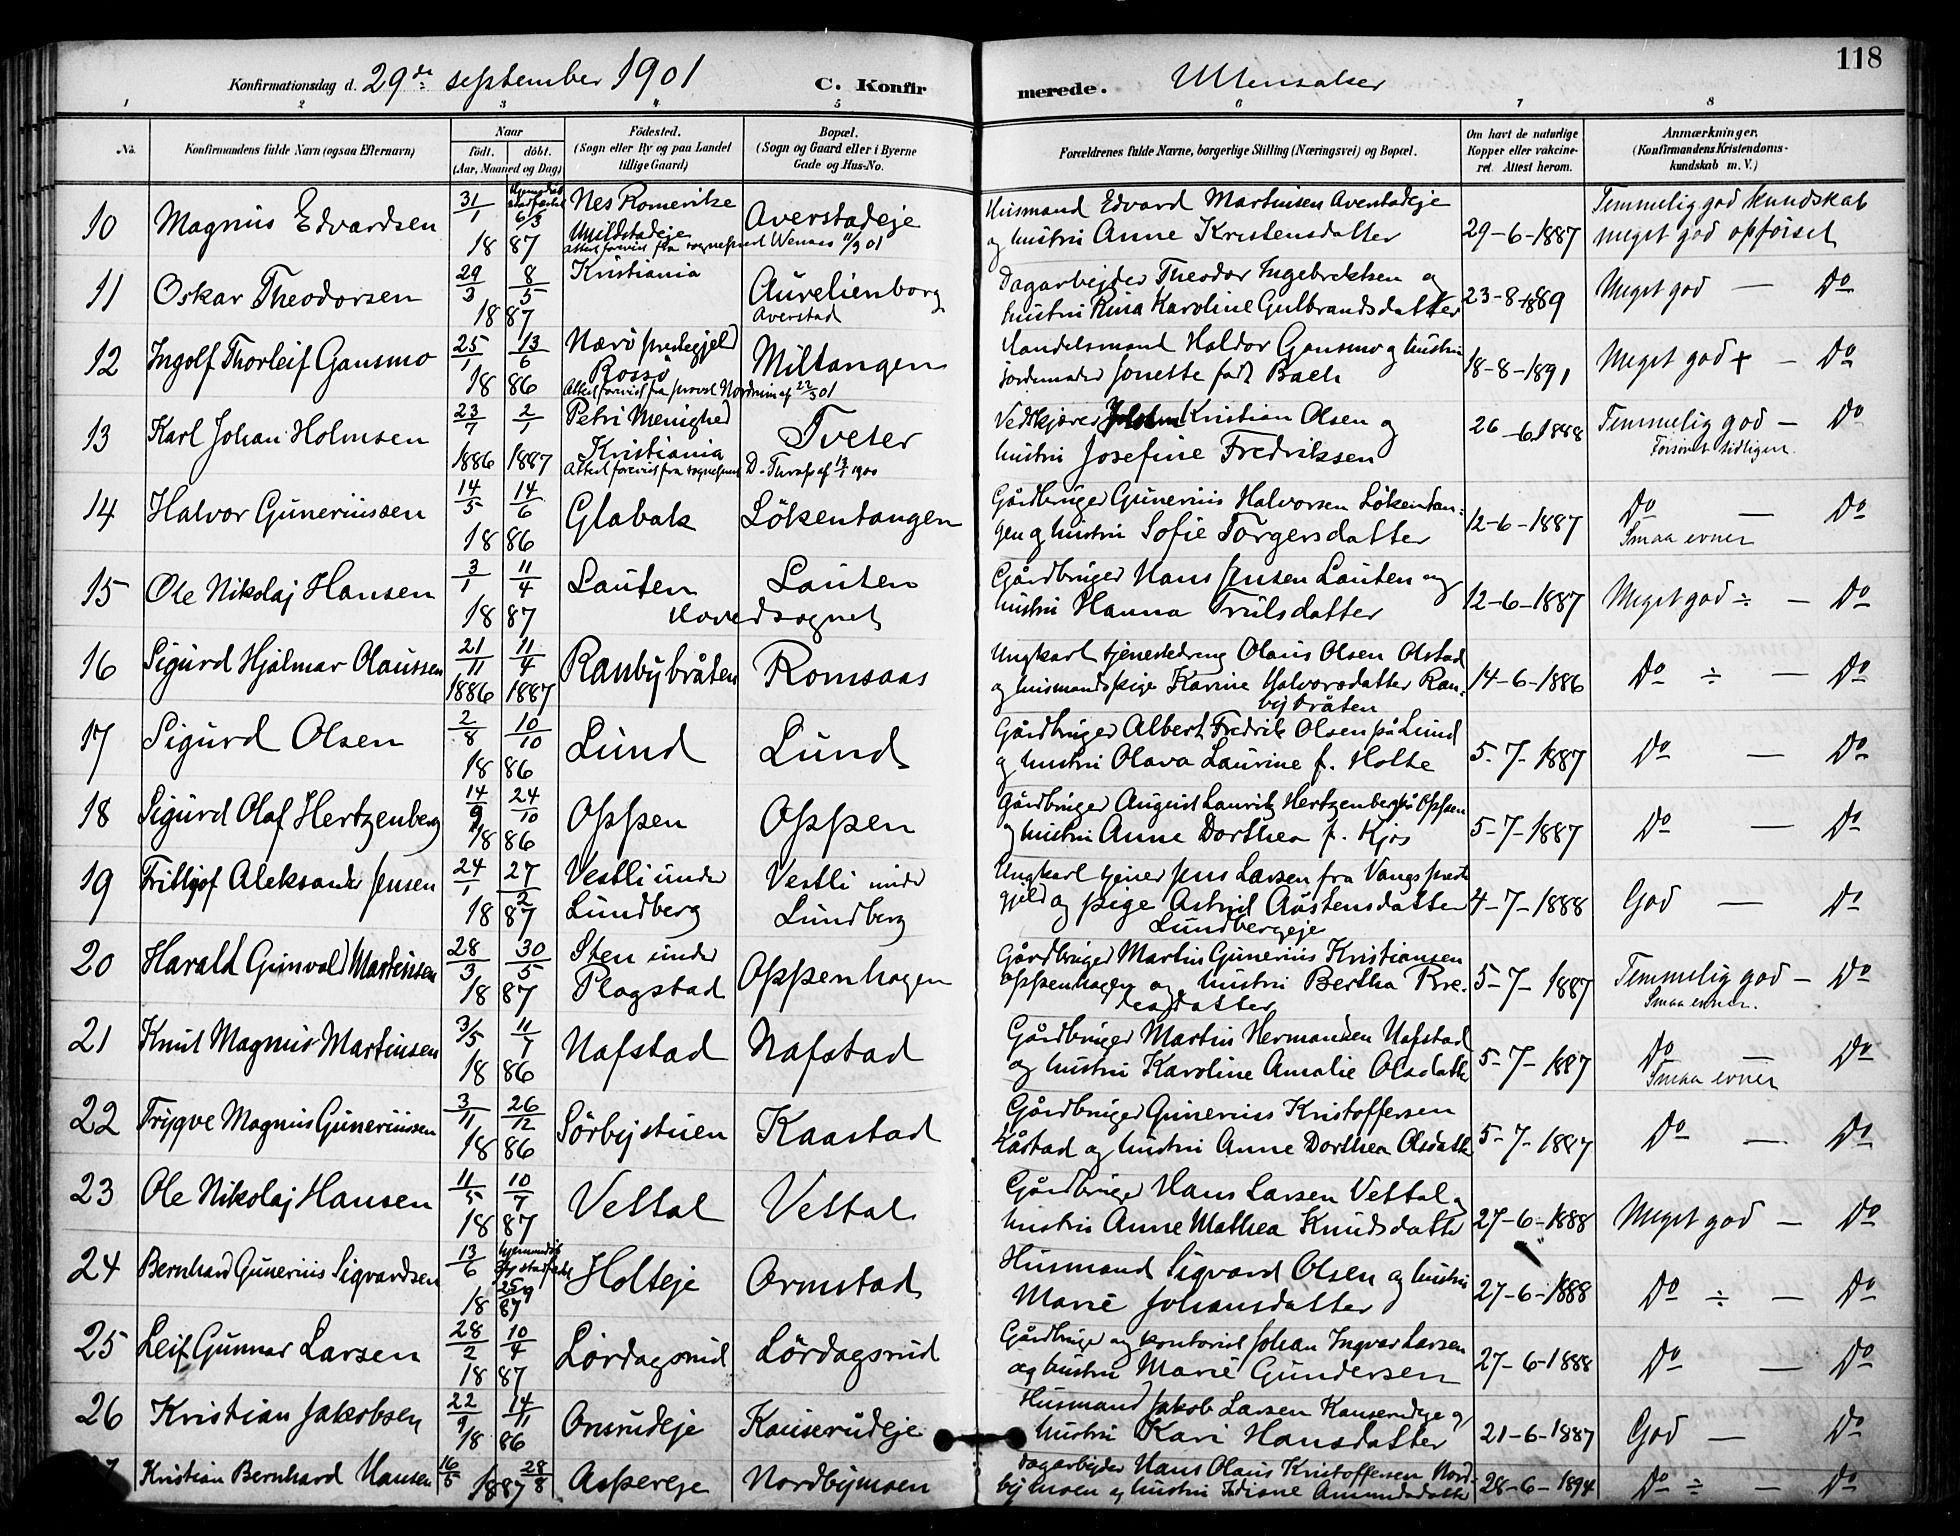 118
Konfirmationsdag d. 29de september 1901 C. Konfirmerede. Ullensaker
1 2 3 4 5 6 7 8
No. Konfirmandens fulde Navn (ogsaa Efternavn) Naar født. døbt. (Aar, Maaned og Dag) Fødested. (Sogn eller By og paa Landet tillige Gaard) Bopæl. (Sogn og Gaard eller i Byerne Gade og Hus-No. Forældrenes fulde Navne, borgerlige Stilling (Næringsvei) og Bopæl. Om havt de naturlige Kopper eller vakcineret. Attest herom. Anmærkninger. (Konfirmandens Kristendomskundskab m. V.)
10 Magnus Edvardsen 31/1 6/3 1887 Nes Romerike Averstadeje Husmand Edvard Martinsen Averstadeje
og hustru Anne Kristensdatter 29-6-1887 Temmelig god kundskab meget god opførsel
Attest forevist fra sognepræst Wenaas 11/9 01
11 Oskar Theodorsen 29/3 8/5 1887 Kristiania Aurelienborg Averstad Dagarbejder Theodor Ingebrektsen og
hustru Rina Karoline Gulbrandsdatter 23-8-1889 Meget god — Do
12 Ingolf Thorleif Gansmo 25/1 13/6 1886 Nærø prestegjeld Rossø Miltangen Handelsmand Haldor Gansmo og hustru
Jordemoder Jonette født Bach 18-8-1891 Meget god + — Do
13 Karl Johan Holmsen 23/7 1886 2/1 1887 Petri Menighed Kristiania Tveter Vedskjører Kristian Olsen og
hustru Josefine Fredriksen 26-6-1888 Temmelig god — Do
Forsømt tidligere.
14 Halvor Guneriussen 14/5 14/6 1886 Glabak Løkentangen Gårdbruger Gunerius Halvorsen Løkentan-
gen og hustru Sofie Torgersdatter 12-6-1887 Do — Do
Smaa evner
15 Ole Nikolaj Hansen 3/1 11/4 1887 Lauten Lauten Gårdbruger Hans Jensen Lauten og
Hovedsognet hustru Hanna Trulsdatter 12-6-1887 Meget god ÷ — Do
16 Sigurd Hjalmar Olaussen 21/11 1886 11/4 1887 Ranbybråten Romsaas Ungkarl tjenestedreng Olaus Olsen Olstad
og husmandspige Karine Halvorsdatter Ran-
bybråten 14-6-1886 Do ÷ — Do
17 Sigurd Olsen 2/8 10/10 1886 Lund Lund Gårdbruger Albert Fredrik Olsen på Lund
og hustru Olava Laurine f. Holte 5-7-1887 Do — Do
18 Sigurd Olaf Hertzenberg 14/9 24/10 1886 Oppen Oppen Gårdbruger August Lauritz Hertzenberg på Oppen
og hustru Anne Dorthea f. Kjos 5-7-1887 Do — Do
19 Frithjof Aleksander Jensen 24/1 27/2 1887 Vestli under Lundberg Vestli under Lundberg Ungkarl tjener Jens Larsen fra Vangs preste
gjeld og pige Astrid Austensdatter
Lundbergeje 4-7-1888 God — Do
20 Harald Gunvald Martinsen 28/3 30/5 1887 Sten under Plogstad Oppenhagen Gårdbruger Martin Gunerius Kristiansen
Oppenhagen og hustru Bertha Pre-
5-7-1887 Temmelig god — Do
Smaa evner.
21 Knut Magnus Martinsen 3/5 11/7 1886 Nafstad Nafstad Gårdbruger Martin Hermansen Nafstad
og hustru Karoline Amalie Olsdatter 5-7-1887 Do — Do
Smaa evner
22 Trygve Magnus Guneriussen 3/11 26/12 1886 Sørbystuen Kaastad Gårdbruger Gunerius Kristoffersen
Kåstad og hustru Anne Dorthea Olsdatter 5-7-1887 Do — Do
23 Ole Nikolaj Hansen 11/5 10/7 1887 Vettal Vettal Gårdbruger Hans Larsen Vettal og
hustru Anne Mathea Knudsdatter 27-6-1888 Meget god — Do
24 Bernhard Gunerius Sigvardsen 13/6 25/9 1887 Holteje Ormstad Husmand Sigvard Olsen og hustru
Marie Johansdatter 27-6-1888 Do ÷ — Do
25 Leif Gunnar Larsen 28/2 10/4 1887 Lørdagsrud Lørdagsrud Gårdbruger og kontorist Johan Ingvar Larsen
og hustru Marie Gundersen 27-6-1888 Do — Do
26 Kristian Jakobsen 22/9 14/11 1886 Onsrudeje Kauserudeje Husmand Jakob Larsen Kauserudeje og
hustru Kari Hansdatter 21-6-1887 God — Do
Kristian Bernhard Hansen 16/5 28/8 1887 Aspereje Nordbymoen Dagarbejder Hans Olaus Kristoffersen Nord-
bymoen og hustru Amundsdatter 28-6-1894 Do ÷ — Do